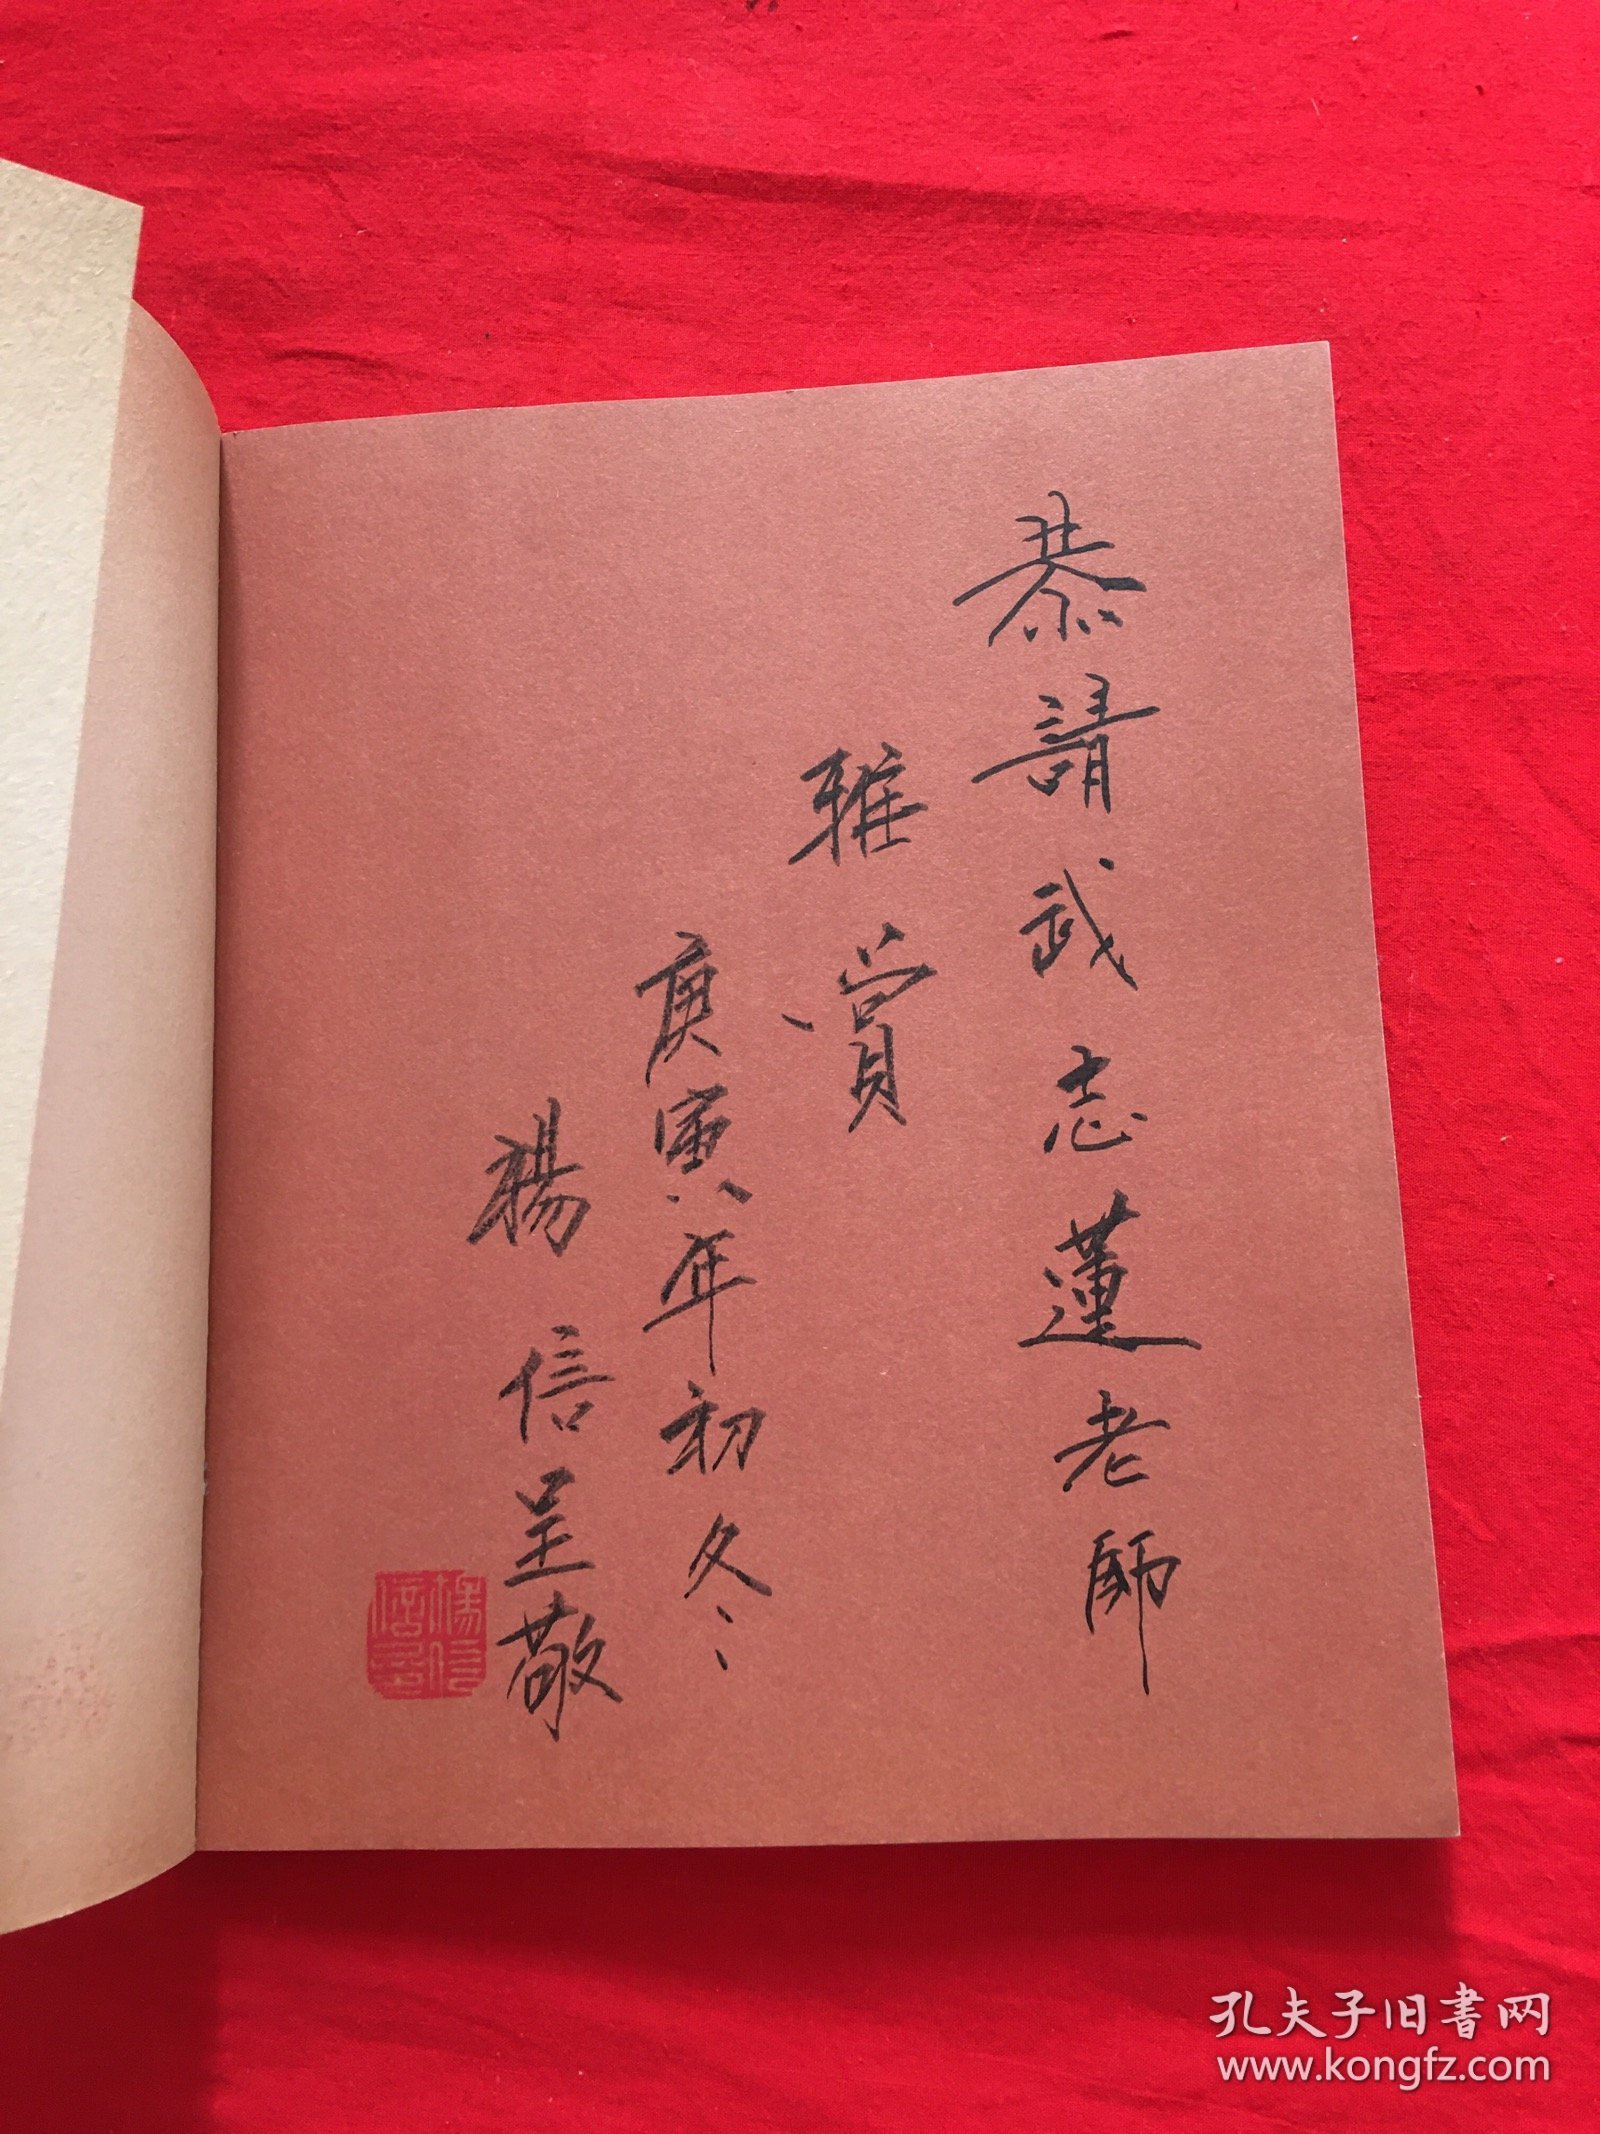 恭請武志蓮老師
雅賞
庚寅年初冬
楊信呈敬
孔夫子旧書网
www.kongfz.com